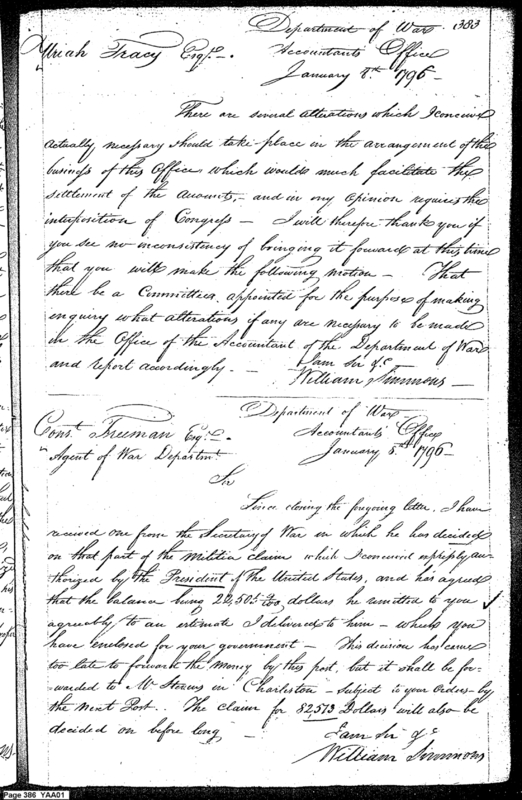 Department of War 383
Uriah Tracy Esqr.
Accountants Office
January 1796
There are several alterations which I conceive
actually necessary should take place in the arrangement of the
business of this Office which would much facilitate the
settlement of the accounts, - and in my opinion requires the
interposition of Congress - I will therefore thank you if
you see no inconsistency of bringing it forward at this time
that you will make the following motion - That
there be a Committee appointed for the purpose of making
enquiry what alterations if any are necessary to be made
in the Office of the Accountant of the Department of War
and report accordingly. -
I am Sir &c
William Simmons -
Department of War
Const. Freeman Esqr.
Accountants Office
Agent of War Departmt.
January 5th 1796 -
Sir
Since closing the foregoing letter, I have
received one from the Secretary of War in which he has decided
on that part of the Militia claim which I conceived expressly au-
thorized by the President of the United States, and has agreed
that the balance being dollars be remitted to you
agreeably to an estimate I delivered to him - which you
have enclosed for your government - This decision has come
too late to forward the money by this post, but it shall be for-
-warded to Mr Stevens in Charleston - subject to your Orders - by
the next Post. The claim for 82,513 Dollars will also be
decided on before long -
I am Sir &c
William Simmons
Page 386 YAA01